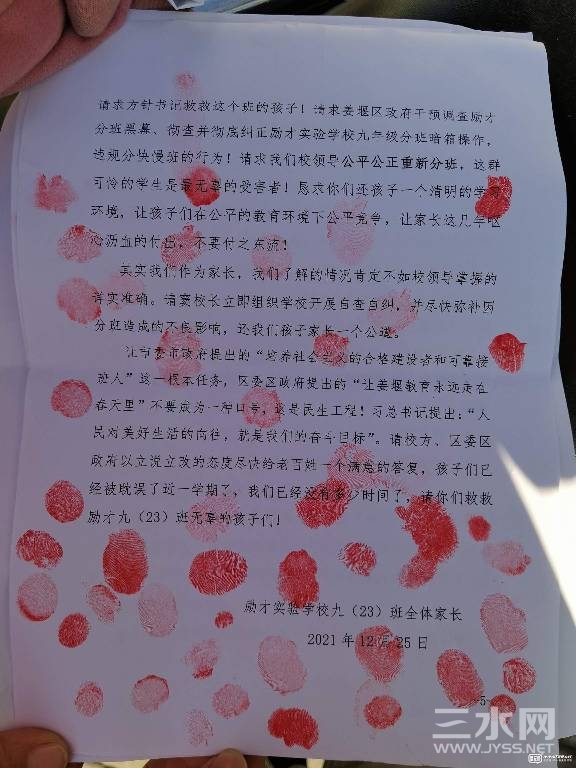 请求方针书记救救这个班的孩子！请求姜堰区政府干预调查励才
分班黑幕、彻查并彻底纠正励才实验学校九年级分班暗箱操作，
违规分快慢班的行为！请求我们校领导公平公正重新分班，这群
可怜的学生是最无辜的受害者！恳求你们还孩子一个清明的学习
环境，让孩子们在公平的教育环境下公平竞争，让家长这几年呕
心沥血的付出，不要付之东流！
其实我们作为家长，我们了解的情况肯定不如校领导掌握的
详实准确。请窦校长立即组织学校开展自查自纠，并尽快弥补因
分班造成的不良影响，还我们孩子家长一个公道。
让市委市政府提出的“培养社会主义的合格建设者和可靠接
班人”这一根本任务，区委区政府提出的“让姜堰教育永远走在
春天里”不要成为一种口号，这是民生工程！习总书记提出：“人
民对美好生活的向往，就是我们的奋斗目标”。请校方、区委区
政府以立说立改的态度尽快给老百姓一个满意的答复，孩子们已
经被耽误了近一学期了，我们已经没有多少时间了，请你们救救
励才九（23）班无辜的孩子们！
励才实验学校九（23）班全体家长
2021 年 12 月 25 日
-5-
三水网
WWW.JYSS.NET